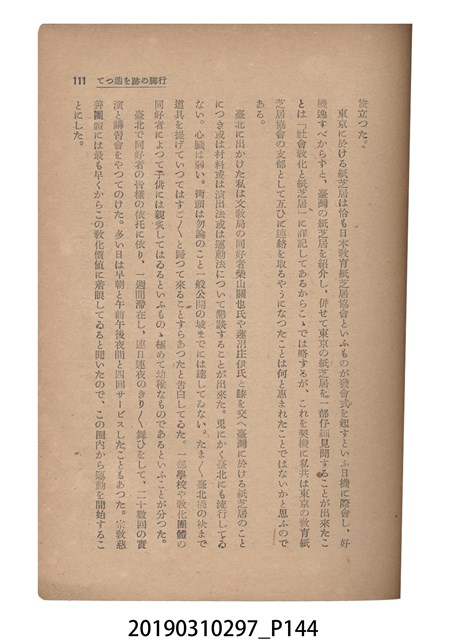 111　てつ廻を跡の脚行
旅立つた。
東京に於ける紙芝居は恰も日本教育紙芝居協會といふものが發會式を起すといふ日機に際會し、好
機逸すべからずと、臺灣の紙芝居を紹介し、併せて東京の紙芝居を一部仔細見聞することが出來たこ
とは「社會教化と紙芝居」に詳記してあるからこゝでは略するが、これを契機に私共は東京の教育紙
芝居協會の支部として互ひに連絡を取るやうになつたことは何と惠まれたことではないかと思ふので
ある。
臺北に出かけた私は文教局の同好者柴山關也氏や蓮沼庄伊氏と膝を交へ臺灣に於ける紙芝居のこと
につき或は材料或は演出法或は運動法について懇談することが出來た。兎にかく臺北にも流行してゐ
ない。心臟は弱い。街頭は勿論のこと一般公開の域までには達してゐない。たま〳〵臺北橋の袂まで
道具を提げていつてはすご〳〵と歸つて來ることすらあつたと告白してゐた。一部學校や教化團體の
同好者によつて子供には親炙してはゐるといふものゝ極めて幼稚なものであるといふことが分つた。
臺北で同好者の皆樣の依托に依り、一週間滯在し、連日連夜のきり〳〵舞ひをして、二十數回の實
演と講習會をやつてのけた。多い日は早朝と午前午後夜間と四回サービスしたこともあつた。宗教慈
善團體には最も早くからこの教化價値に着眼してゐると聞いたので、この圈內から運動を開始するこ
とにした。
20190310297_P144